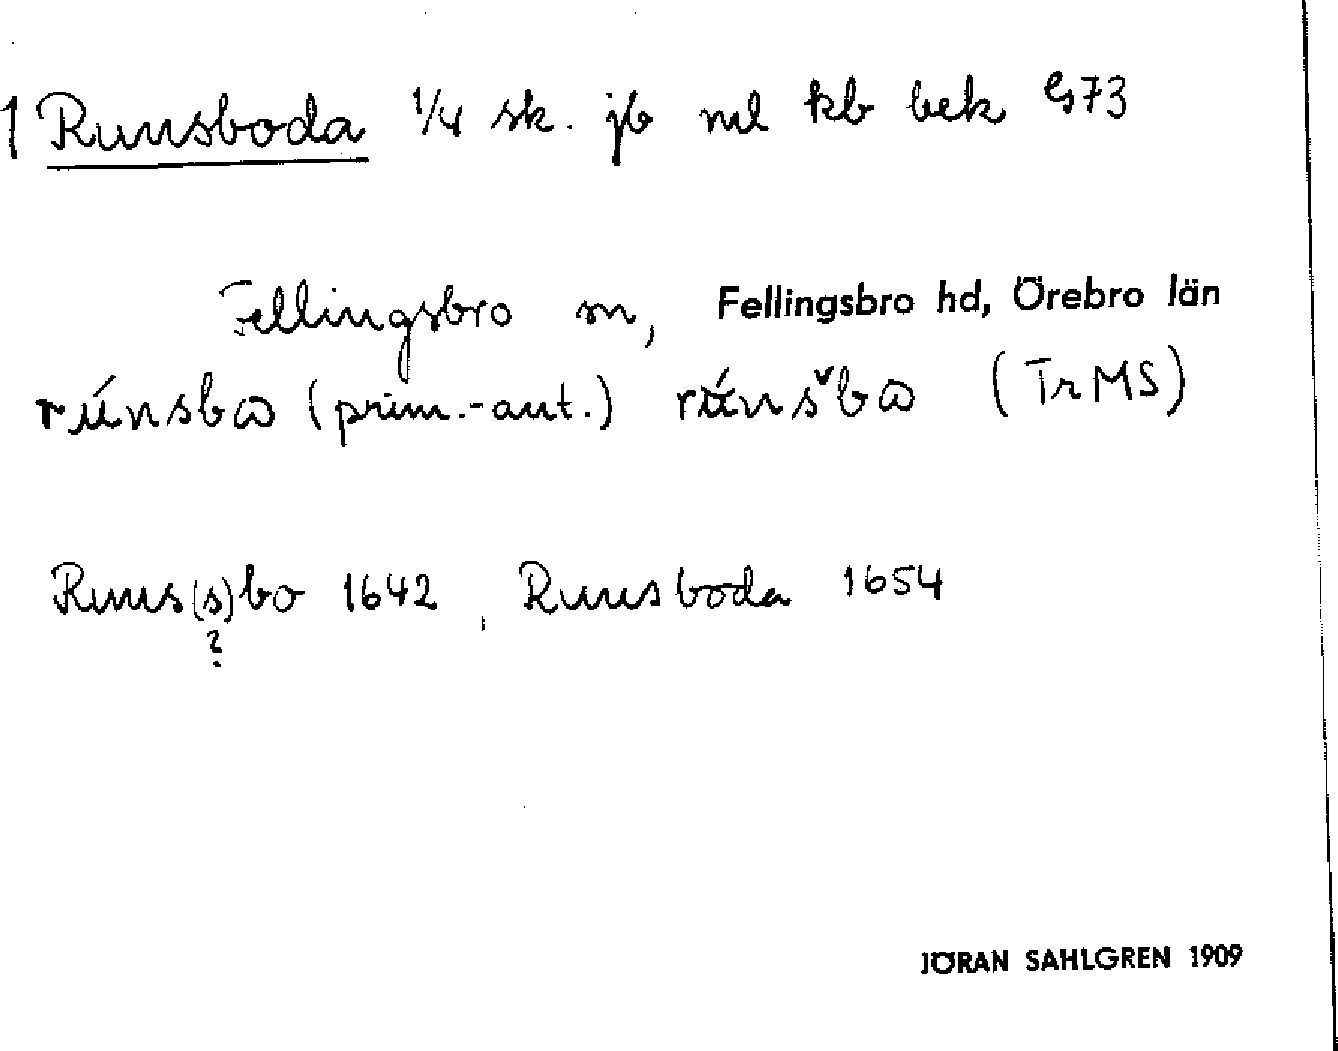 1 Runsboda 1/4 sk. jb ml kb bek G73
Fellingsbro sn, Fellingsbro hd, Örebro län
rúnsbω (prim.-ant.) (TrMS)
Runs(s)bo 1642, Runsboda 1654
?
JÖRAN SAHLGREN 1909